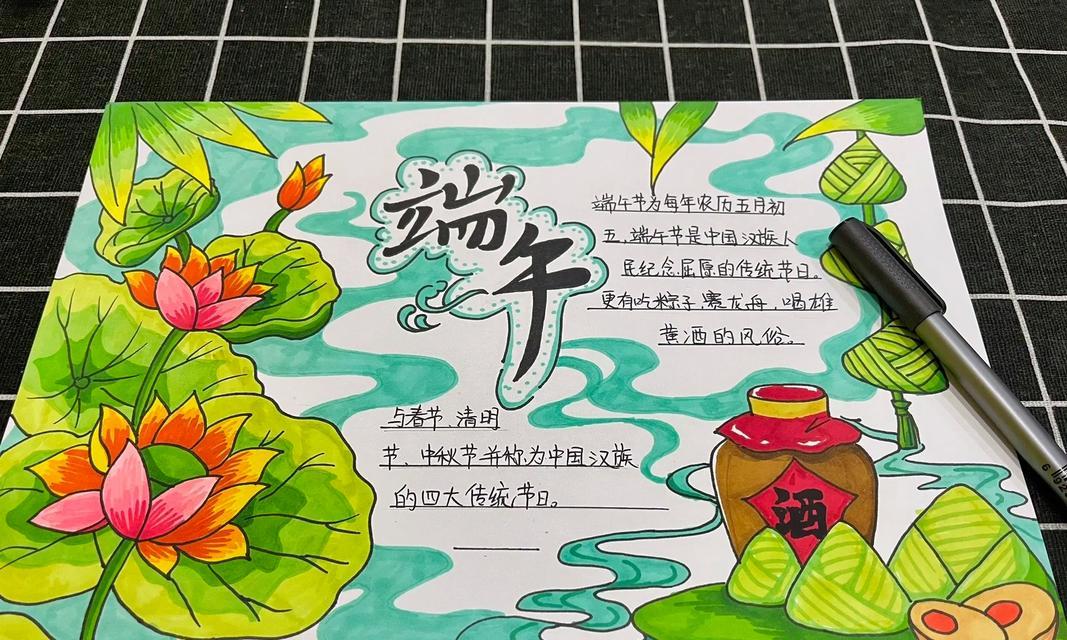 端午
端午节为每年农历五月初
五、端午节是中国汉族人
民纪念屈原的传统节日。
更有吃粽子,赛龙舟,喝雄
黄酒的风俗。
与春节、清明
节、中秋节并称为中国汉族
的四大传统节日。
酒